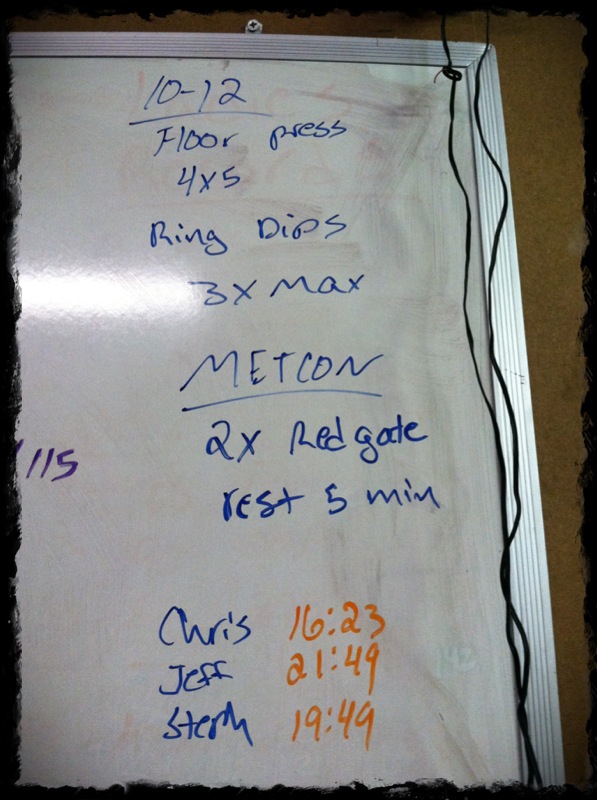 10-12
Floor press
4x5
Ring Dips
3x Max
METCON
2x Redgate
/115
rest 5 min
Chris 16:23
Jeff 21:49
Steph 19:49